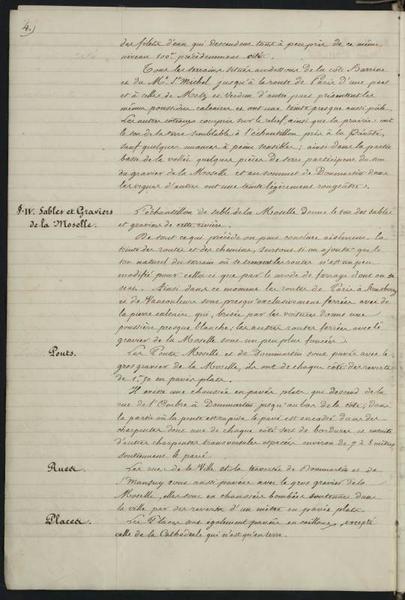 4.)
des filets d'eau qui descendent tous à peu près de ce même
niveau 300m précédemment cité.
Tous les terrains situés au dessous de la côte Barrine
et du Mt. St. Michel jusqu'à la route de Paris d'une part
et à celles de Metz et Verdun d'autre part présentent la
même poussière calcaire et ont une teinte presque aussi pâle.
Les autres coteaux compris sur le relief ainsi que la prairie ont
le ton de la terre semblable à l'échantillon pris à la
sauf quelques nuances à peine sensibles; ainsi dans la partie
basse de la vallée quelques pièces de terre participent du ton
du gravier de la Moselle et au sommet de Dommartin dans
les vignes d'autres ont une teinte légèrement rougeâtre.
§. IV. Sables et Graviers
de la Moselle.
L'échantillon de sable de la Moselle donne le ton des sables
et graviers de cette rivière.
De tout ce qui précède on peut conclure aisément la
teinte des routes et des chemins, surtout si on ajoute que le
ton naturel du terrain où se trouvent les routes n'est un peu
modifié pour celles-ci que par le mode de ferrage dont on se
sert. Ainsi dans ce moment les routes de Paris à Strasbourg
et de Vaucouleurs sont presqu'exclusivement ferrées avec de
la pierre calcaire qui, brisée par les voitures donne une
poussière presque blanche; les autres routes ferrées avec le
gravier de la Moselle sont un peu plus foncées.
Ponts.
Les Ponts Moselle et de Dommartin sont pavés avec le
gros gravier de la Moselle. Ils ont de chaque côté des revers
de 1m,30 en pavés plats.
Il existe une chaussée en pavés plats qui descend de la
rue de l'Orbe à Dommartin jusqu'au bas de la côte; dans
la partie où la pente est rapide le pavé est encadré dans des
charpentes dont une de chaque côté sert de bordure et ensuite
d'autres charpentes transversales espacées environ de 7 à 8 mètres
soutiennent le pavé.
Rues.
Les rues de la Ville et la traverse de Dommartin et de
St. Mansuy sont aussi pavées avec le gros gravier de la
Moselle, elles sont en chaussées bombées soutenues dans
la ville par des revers d'un mètre en pavés plats.
Places.
Les Places sont également pavées en cailloux, excepté
celle de la Cathédrale qui n'est qu'en terre.